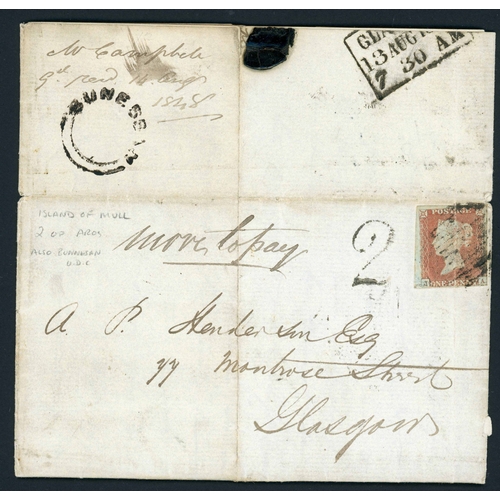 Mr Campbell
14 Augt
1848
BUNESSAN
13 AUG
7 30 AM
ISLAND OF MULL
2 OF AROS
ALSO BUNNESSAN
U.D.C
more to pay
2
POSTAGE
ONE PENNY
A. P. Henderson Esq
77 Montrose Street
Glasgow